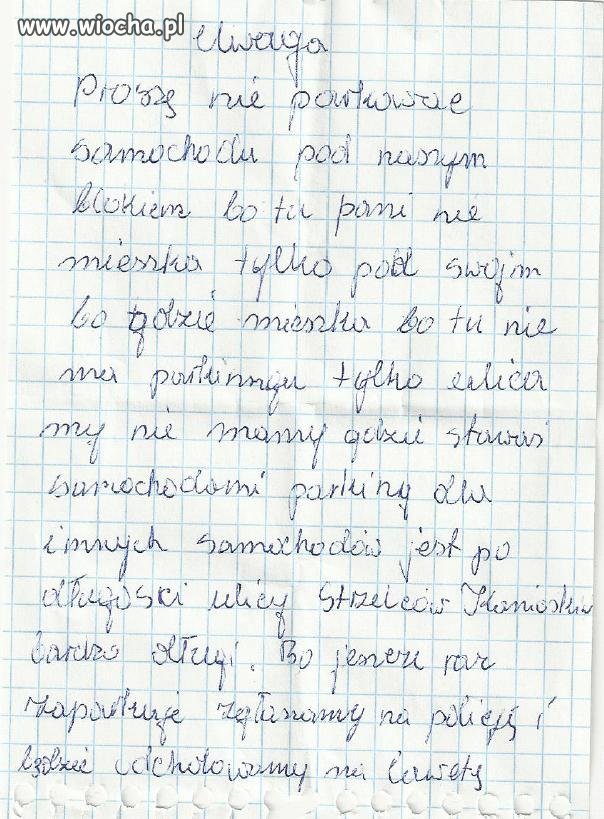 www.wiocha.pl
Uwaga
Proszę nie parkować
samochodu pod naszym
blokiem bo tu pani nie
mieszka, tylko pod swojim
bo gdzie mieszka bo tu nie
ma parkinngu tylko ulica
my nie mamy gdzie stawać
samochodami parking dla
innych samochodów jest po
długości ulicy Strzelców Kaniowskiw
bardzo długi. Bo jeszcze raz
zaparkuje zgłaszamy na policję i
będzie odcholowamy na lawetę